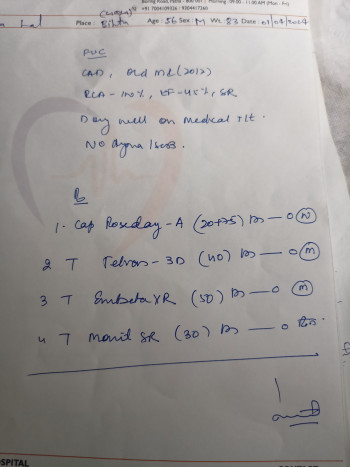 Boring Road, Patna - 800 001 | Morning 09:30 - 11:30 AM (Mon - Fri)
+91 7004109326 / 9304417360
Place: Bihta Age: 56 Sex: M Wt: 83 Date: 01/04/2024
PVC
CAD, Old MI (2012)
RCA - 100%, EF - 45%, SR
Doing well on Medical trt.
NO Angina / SOB.
Rx
1. Cap Roseday - A (20+75) — 0 N
2 T (40) — 0 M
3 T Embeta XR (50) — 0 M
4 T Monit SR (30) — 0
HOSPITAL
CONTACT